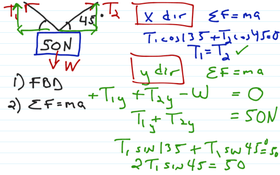 T₁ 45 T₂
50N
W
1) FBD
2) ΣF=ma
X dir ΣF=ma
T₁cos135+T₂cos45=0
T₁=T₂ ✓
y dir ΣF=ma
+T₁y+T₂y-W=0
T₁y+T₂y=50N
T₁sin135+T₁sin45=50
2T₁sin45=50